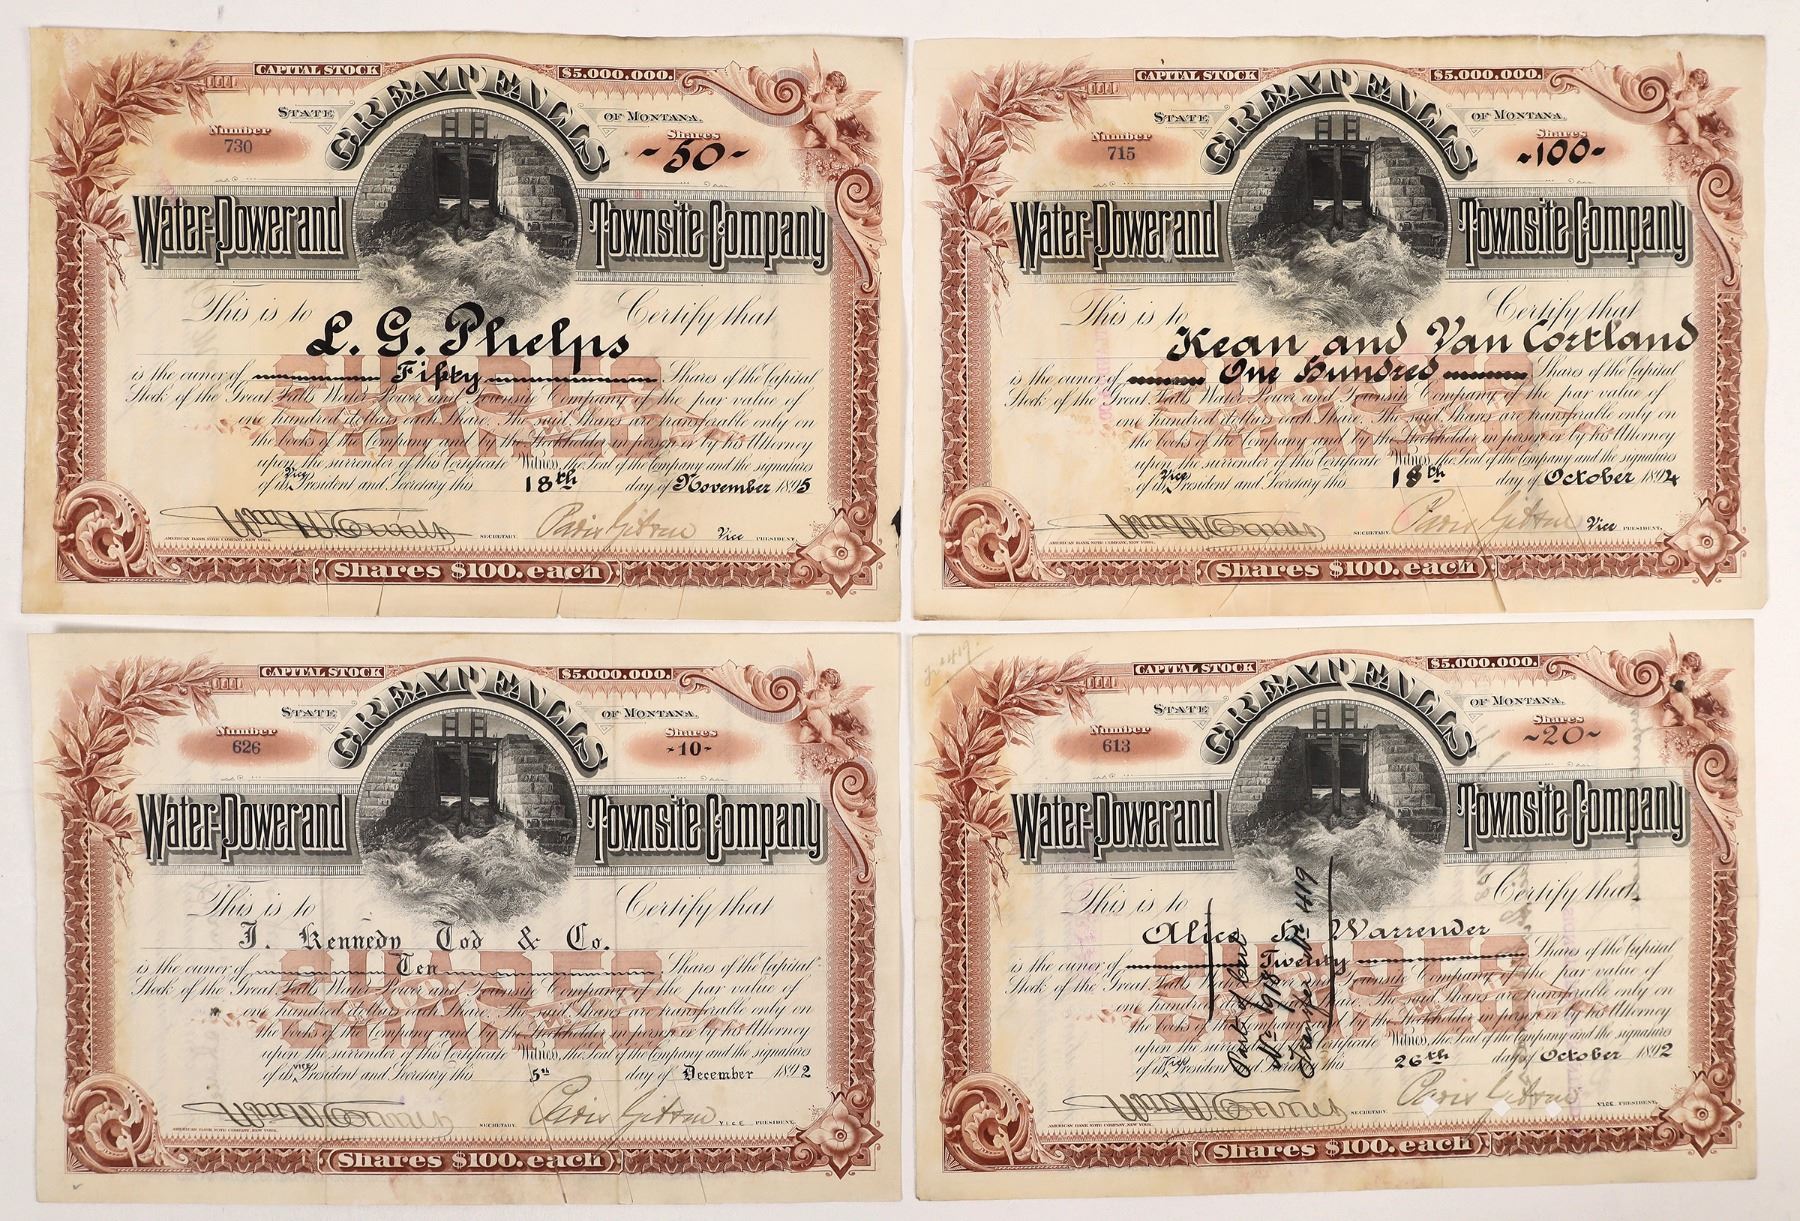 CAPITAL STOCK $5,000,000.
GREAT FALLS
STATE OF MONTANA.
Number Shares
730 -50-
Water-Power and Townsite Company
This is to Certify that
L. G. Phelps
is the owner of Fifty Shares of the Capital
Stock of the Great Falls Water Power and Townsite Company of the par value of
one hundred dollars each Share. The said Shares are transferable only on
the books of the Company and by the Stockholder in person or by his Attorney
upon the surrender of this Certificate Witness, the Seal of the Company and the signatures
of its Vice President and Secretary this 18th day of November 1895
SHARES
Paris Gibson
AMERICAN BANK NOTE COMPANY, NEW YORK. SECRETARY. Vice PRESIDENT.
Shares $100. each
CAPITAL STOCK $5,000,000.
GREAT FALLS
STATE OF MONTANA.
Number Shares
715 -100-
Water-Power and Townsite Company
This is to Certify that
Kean and Van Cortland
is the owner of One Hundred Shares of the Capital
Stock of the Great Falls Water Power and Townsite Company of the par value of
one hundred dollars each Share. The said Shares are transferable only on
the books of the Company and by the Stockholder in person or by his Attorney
upon the surrender of this Certificate Witness, the Seal of the Company and the signatures
of its Vice President and Secretary this 18th day of October 1894
Paris Gibson
AMERICAN BANK NOTE COMPANY, NEW YORK. SECRETARY. Vice PRESIDENT.
Shares $100. each
CAPITAL STOCK $5,000,000.
GREAT FALLS
STATE OF MONTANA.
Number Shares
626 -10-
Water-Power and Townsite Company
This is to Certify that
J. Kennedy Tod & Co.
is the owner of Ten Shares of the Capital
Stock of the Great Falls Water Power and Townsite Company of the par value of
one hundred dollars each Share. The said Shares are transferable only on
the books of the Company and by the Stockholder in person or by his Attorney
upon the surrender of this Certificate Witness, the Seal of the Company and the signatures
of its VICE President and Secretary this 5th day of December 1892
SHARES
Paris Gibson
AMERICAN BANK NOTE COMPANY, NEW YORK. SECRETARY. VICE PRESIDENT.
Shares $100. each
CAPITAL STOCK $5,000,000.
GREAT FALLS
STATE OF MONTANA.
Number Shares
613 -20-
Water-Power and Townsite Company
This is to Certify that
Alice H. Warrender
is the owner of Twenty Shares of the Capital
Stock of the Great Falls Water Power and Townsite Company of the par value of
one hundred dollars each Share. The said Shares are transferable only on
the books of the Company and by the Stockholder in person or by his Attorney
upon the surrender of this Certificate Witness, the Seal of the Company and the signatures
of its Vice President and Secretary this 26th day of October 1892
Transfer No 419
Paris Gibson
AMERICAN BANK NOTE COMPANY, NEW YORK. SECRETARY. VICE PRESIDENT.
Shares $100. each